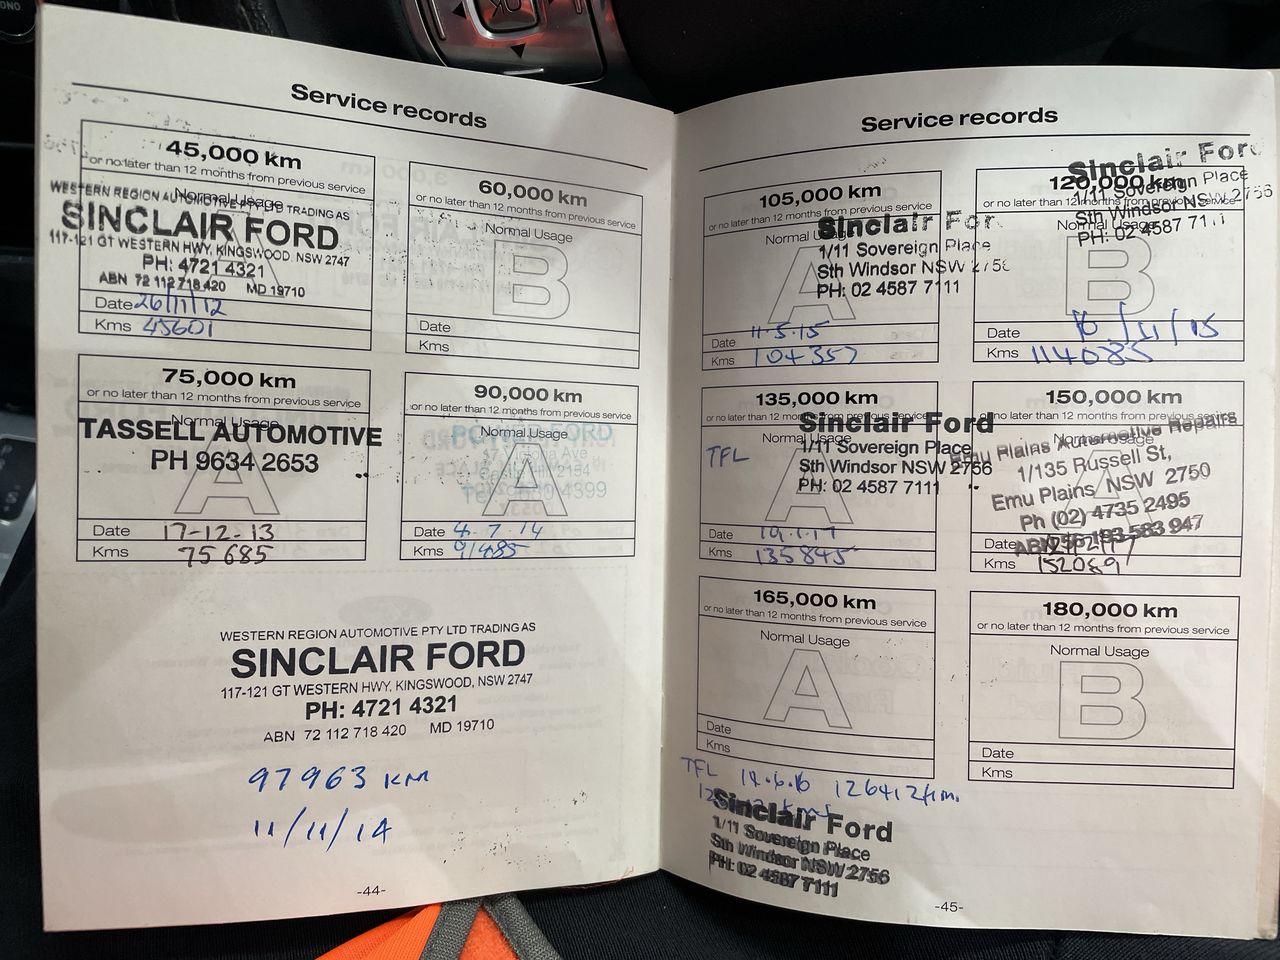 Service records
45,000 km
or no later than 12 months from previous service
Normal Usage
WESTERN REGION AUTOMOTIVE PTY LTD TRADING AS
SINCLAIR FORD
117-121 GT WESTERN HWY, KINGSWOOD, NSW 2747
PH: 4721 4321
ABN 72 112 718 420 MD 19710
A
Date 26/11/12
Kms 45601
60,000 km
or no later than 12 months from previous service
Normal Usage
B
Date
Kms
75,000 km
or no later than 12 months from previous service
Normal Usage
TASSELL AUTOMOTIVE
PH 9634 2653
A
Date 17-12-13
Kms 75685
90,000 km
or no later than 12 months from previous service
Normal Usage
FORD
Ave
2154
4399
A
Date 4.7.14
Kms 91485
WESTERN REGION AUTOMOTIVE PTY LTD TRADING AS
SINCLAIR FORD
117-121 GT WESTERN HWY, KINGSWOOD, NSW 2747
PH: 4721 4321
ABN 72 112 718 420 MD 19710
97963 KM
11/11/14
-44-
Service records
105,000 km
or no later than 12 months from previous service
Normal Usage
Sinclair For
1/11 Sovereign Place
Sth Windsor NSW 2756
PH: 02 4587 7111
A
Date 11.5.15
Kms 104357
120,000 km
or no later than 12 months from previous service
Normal Usage
Sinclair Ford
1/11 Sovereign Place
Sth Windsor NSW 2756
PH: 02 4587 7111
B
Date 10/11/15
Kms 114085
135,000 km
or no later than 12 months from previous service
Normal Usage
TFL
Sinclair Ford
1/11 Sovereign Place
Sth Windsor NSW 2756
PH: 02 4587 7111
A
Date 19.1.17
Kms 135845
150,000 km
or no later than 12 months from previous service
Normal Usage
Emu Plains Automotive Repairs
1/135 Russell St,
Emu Plains NSW 2750
Ph (02) 4735 2495
193 583 947
A
Date
Kms 152089
165,000 km
or no later than 12 months from previous service
Normal Usage
A
Date
Kms
180,000 km
or no later than 12 months from previous service
Normal Usage
B
Date
Kms
TFL 14.6.16
Sinclair Ford
1/11 Sovereign Place
Sth Windsor NSW 2756
PH: 02 4587 7111
-45-